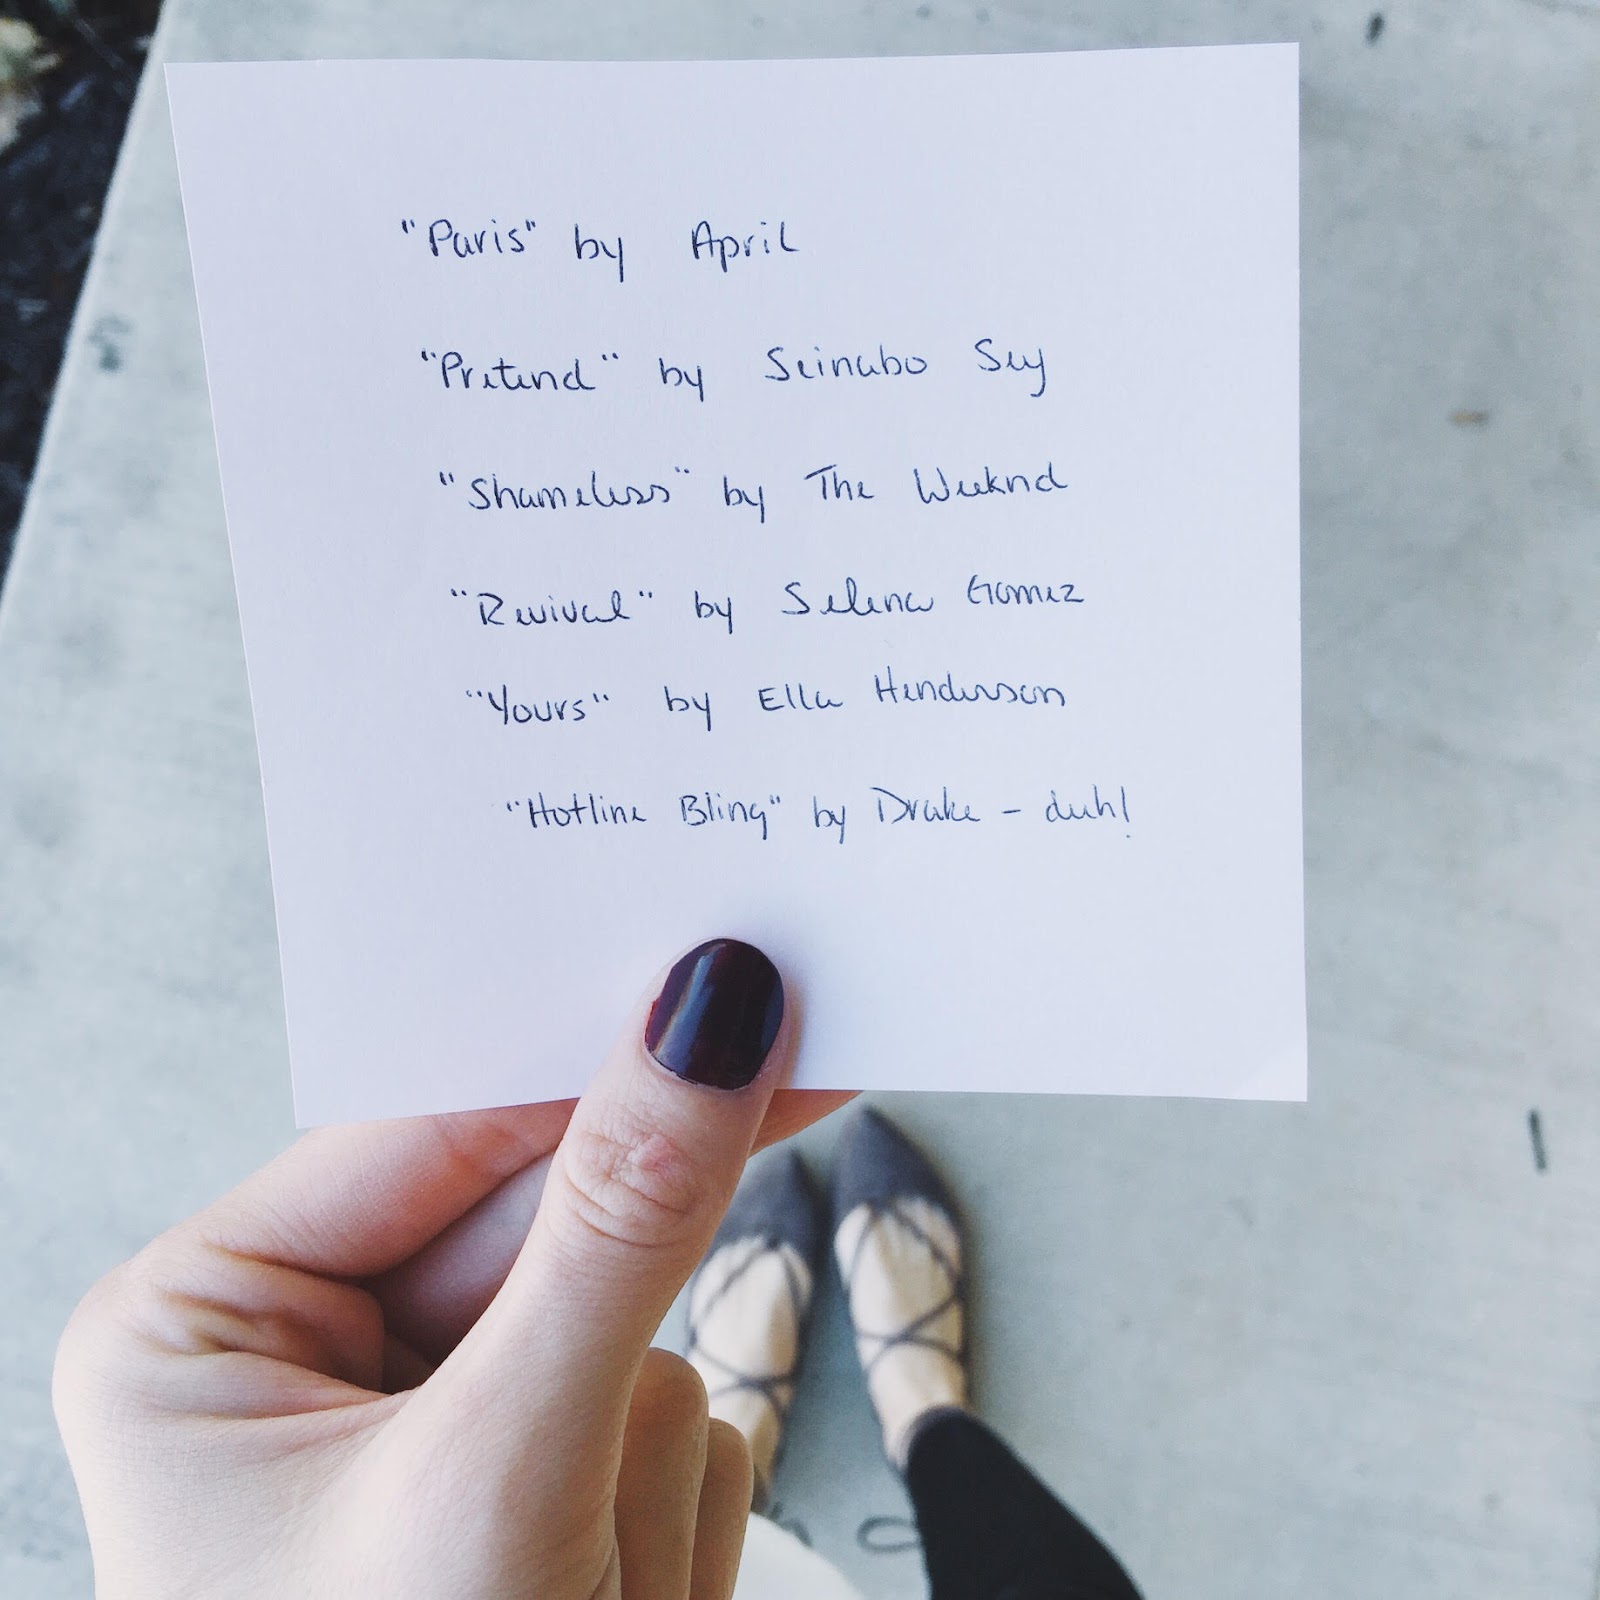 "Paris" by April
"Pretend" by Seinabo Sey
"Shameless" by The Weeknd
"Revival" by Selena Gomez
"Yours" by Ella Henderson
"Hotline Bling" by Drake - duh!